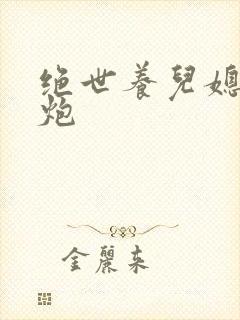 绝世養兒媳
炮
金麗来